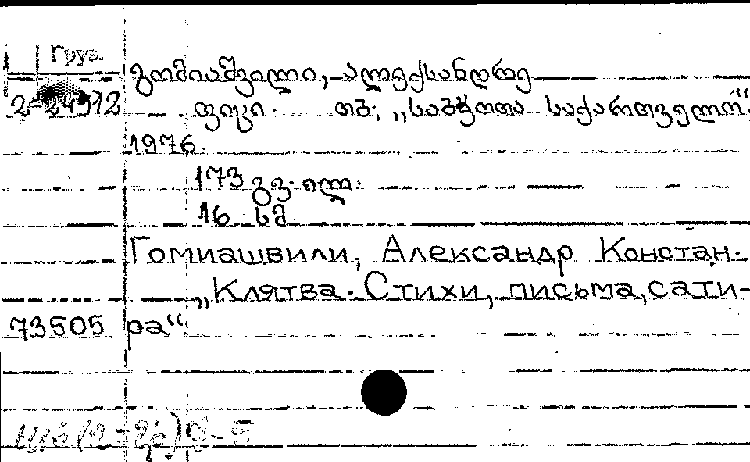 Груз.
გომიაშვილი, ალექსანდრე
2-24912 ფიცი. თბ., „საბჭოთა საქართველო“,
1976.
173 გვ. ილ.
16 სმ
Гомиашвили, Александр Констан-
„Клятва. Стихи, письма, сати-
73505 ра“